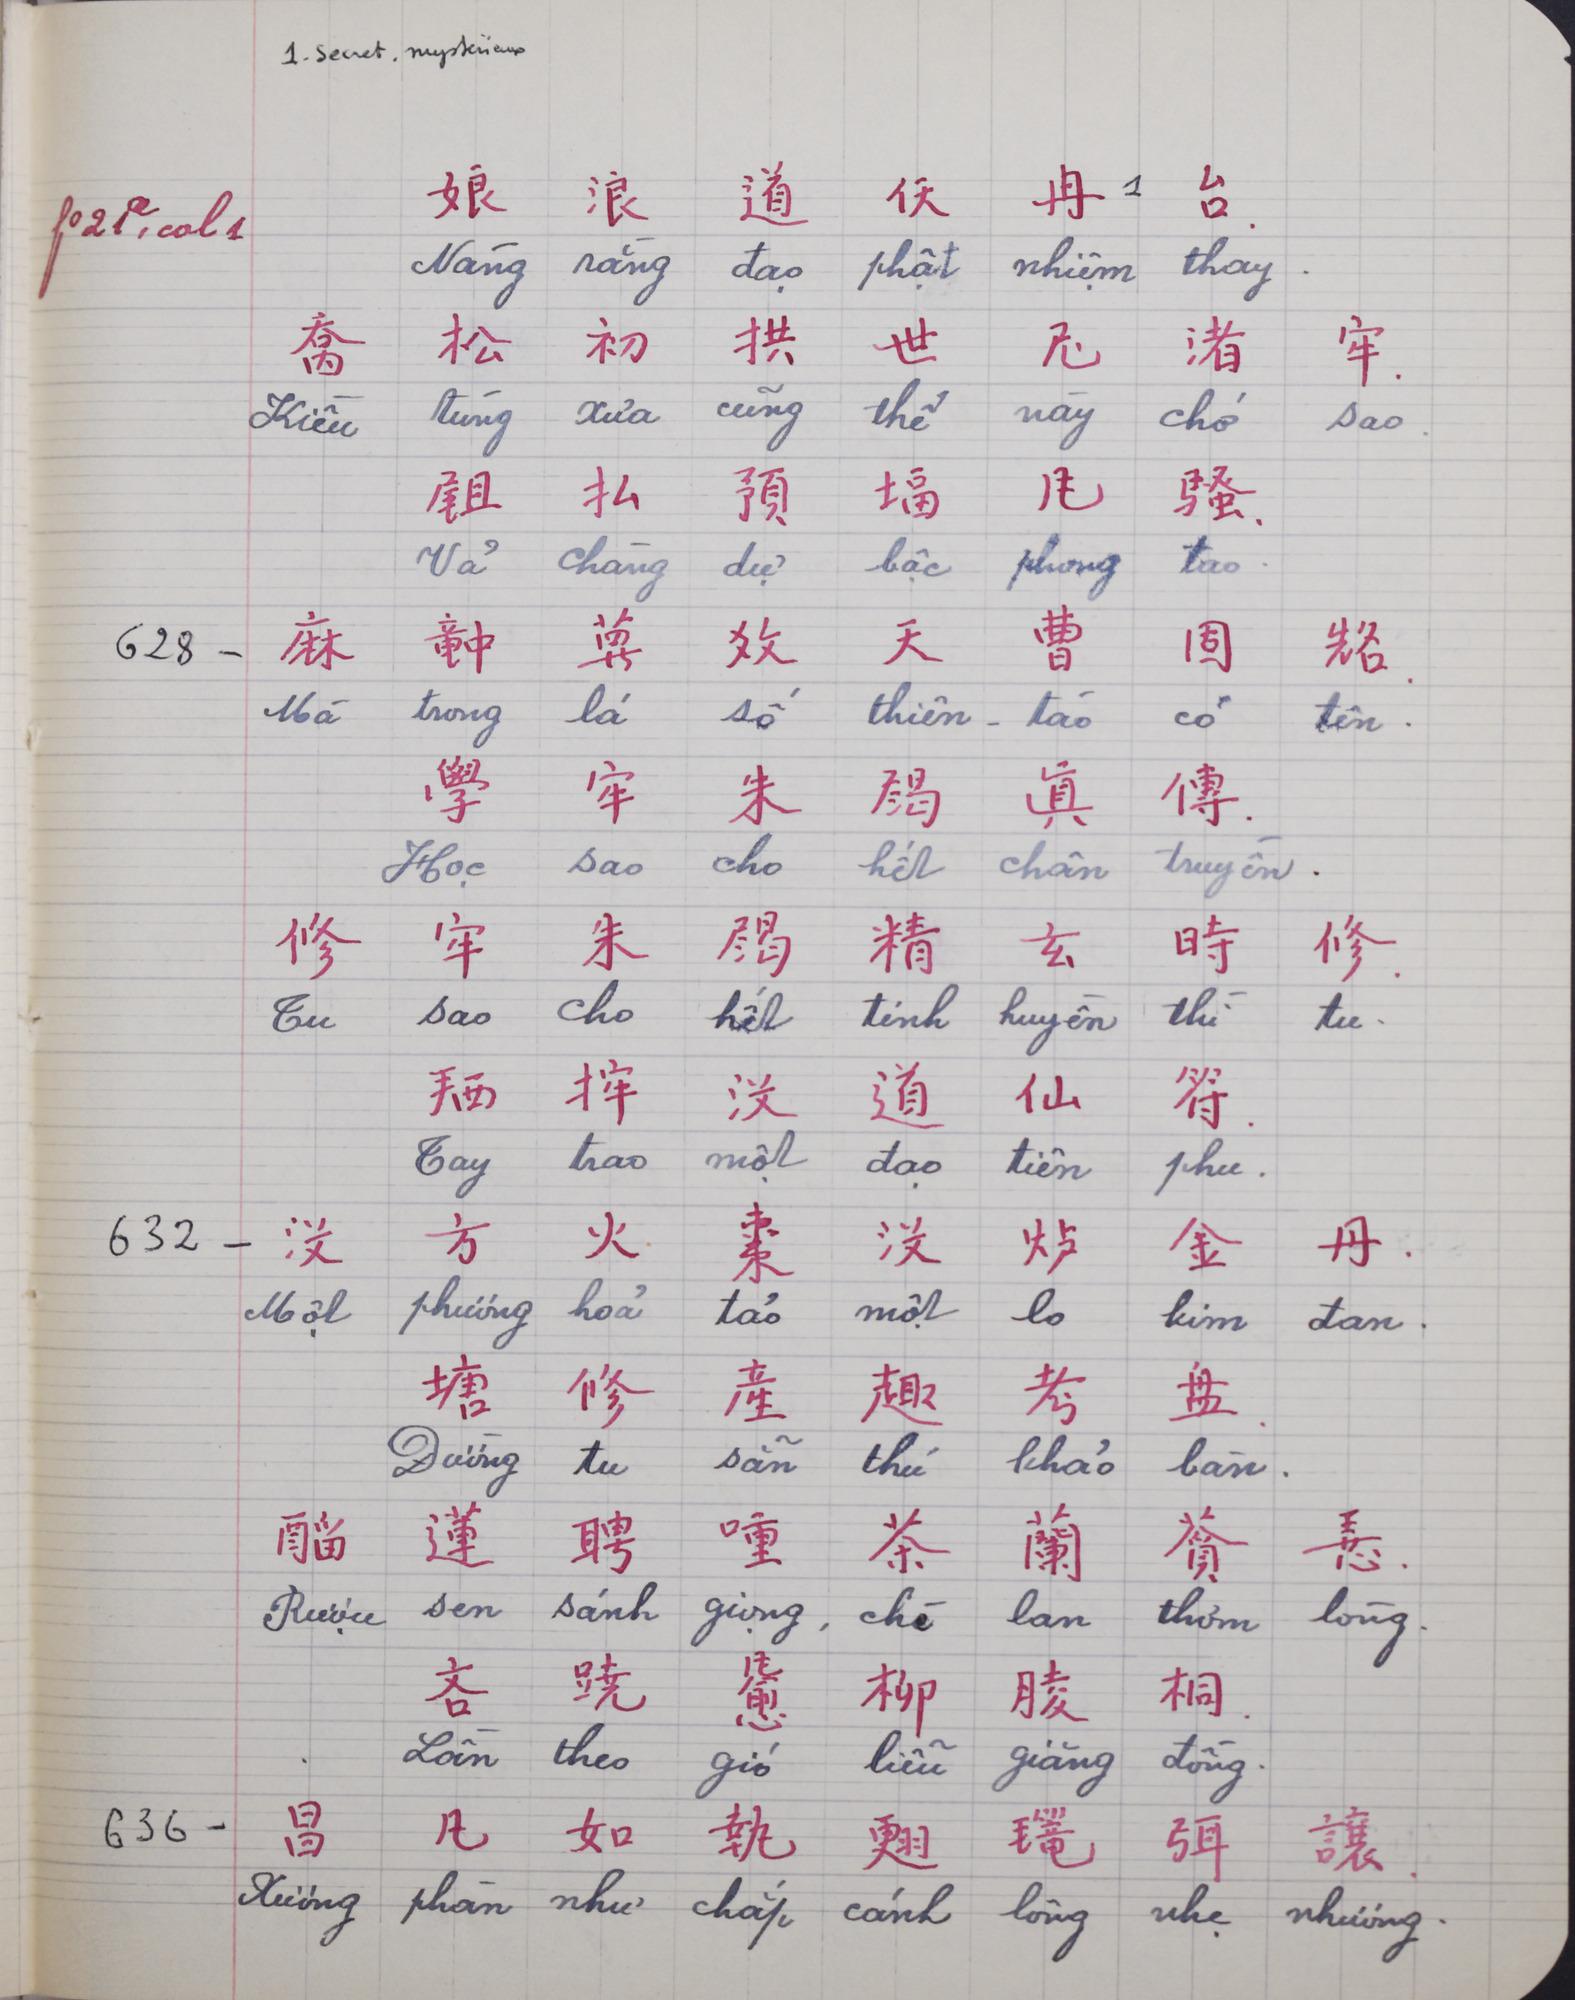 1. secret, mystérieux
fº 21rº, col 1
娘 浪 道 仸 冉 1 台.
Nàng rằng đạo phật nhiệm thay.
喬 松 初 拱 世 尼 渚 牢.
Kiều tùng xưa cũng thế này chớ sao.
払 預 堛 凡 騷.
Vả chàng dự bậc phong tao.
628 - 麻 𥪝 蘂 效 天 曹 固 𠸛.
Mà trong lá số thiên-tào có tên.
學 牢 朱 歇 眞 傳.
Học sao cho hết chân truyền.
修 牢 朱 歇 精 玄 時 修.
Tu sao cho hết tinh huyền thì tu.
𢬣 㨔 没 道 仙 符.
Tay trao một đạo tiên phu.
632 - 没 方 火 棗 没 炉 金 丹.
Một phương hoả táo một lo kim đan.
塘 修 產 趣 考 盘.
Đường tu sẵn thú khảo bàn.
𨢇 蓮 聘 喠 茶 蘭 薋 𢚸.
Rượu sen sánh giọng, chè lan thơm lòng.
吝 蹺 柳 朘 桐.
Lần theo gió liễu giăng đồng.
636 - 昌 凡 如 執 翅 弭 讓.
Xương phàn như chắp cánh lông nhẹ nhường.